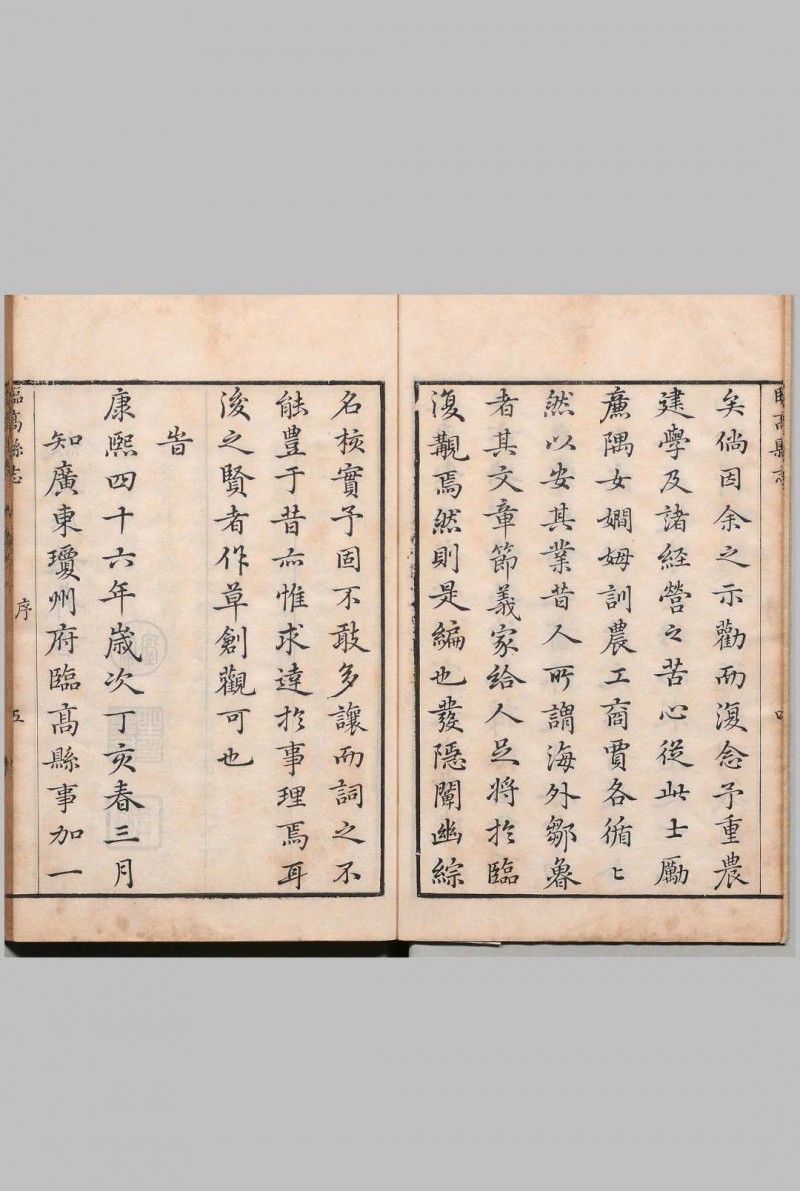 矣倘因余之示勸而復念予重農
建學及諸經營之苦心從此士勵
廉隅女嫺姆訓農工商賈各循〻
然以安其業昔人所謂海外鄒魯
者其文章節義家給人足將於臨
復覩焉然則是編也發隱闡幽綜
名核實予固不敢多讓而詞之不
能豐于昔亦惟求達於事理焉耳
後之賢者作草創觀可也
旹
康熙四十六年歲次丁亥春三月
知廣東瓊州府臨髙縣事加一
臨髙縣志
序
五